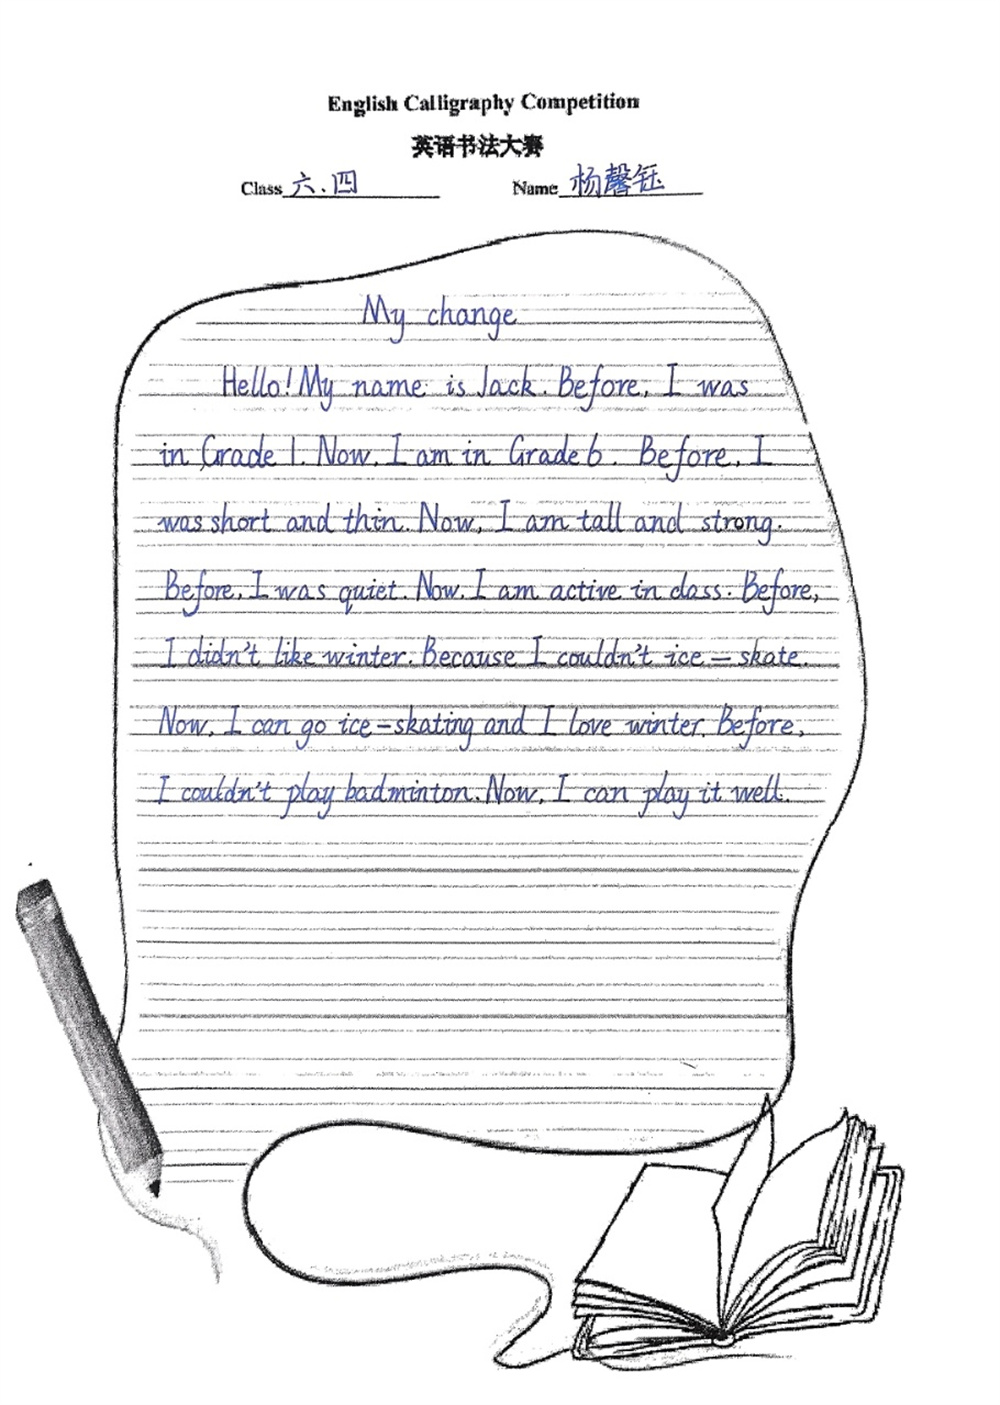 English Calligraphy Competition
英语书法大赛
Class 六.四 Name 杨馨钰
My change
Hello! My name is Jack. Before, I was
in Grade 1. Now, I am in Grade 6. Before, I
was short and thin. Now, I am tall and strong.
Before, I was quiet. Now, I am active in class. Before,
I didn't like winter. Because I couldn't ice-skate.
Now, I can go ice-skating and I love winter. Before,
I couldn't play badminton. Now, I can play it well.